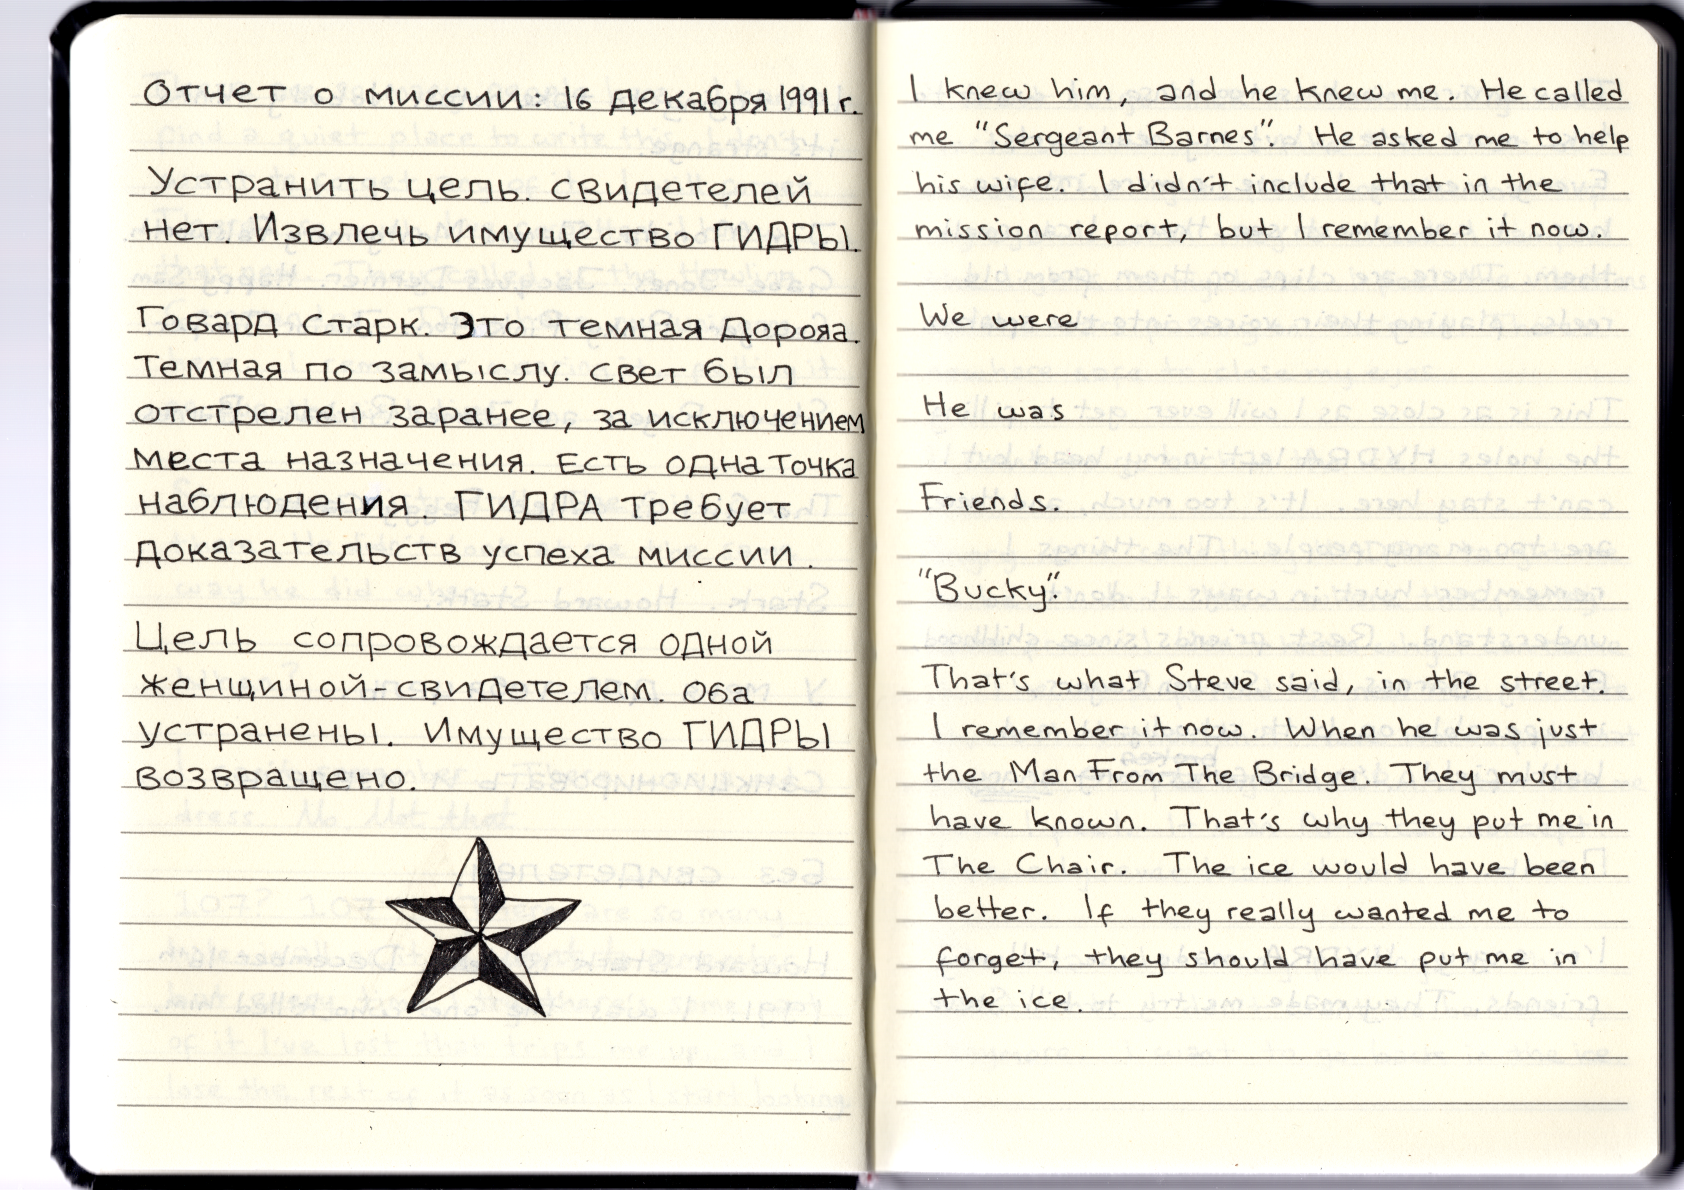 Отчет о миссии: 16 декабря 1991 г.
Устранить цель. свидетелей
нет. Извлечь имущество ГИДРЫ.
Говард Старк. Это темная дорояа.
Темная по замыслу. свет был
отстрелен заранее, за исключением
места назначения. Есть одна точка
наблюдения ГИДРА требует
доказательств успеха миссии.
Цель сопровождается одной
женщиной-свидетелем. Оба
устранены. Имущество ГИДРЫ
возвращено.
I knew him, and he knew me. He called
me "Sergeant Barnes". He asked me to help
his wife. I didn't include that in the
mission report, but I remember it now.
We were
He was
Friends.
"Bucky".
That's what Steve said, in the street.
I remember it now. When he was just
the Man From The Bridge. They must
have known. That's why they put me in
The Chair. The ice would have been
better. If they really wanted me to
forget, they should have put me in
the ice.